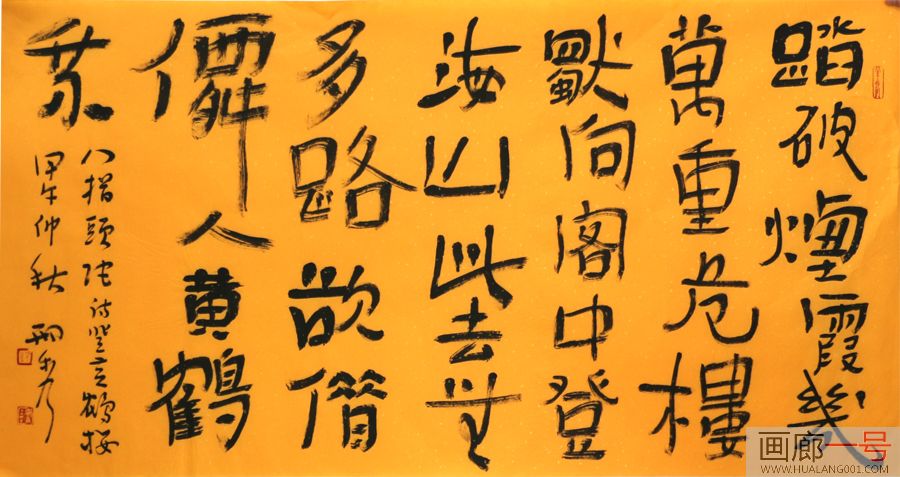 踏破煙霞幾
萬重危樓
獨向閣中登
海山此去無
多路欲借
僊人黄鶴
乘
八指頭陀詩登黄鶴樓
甲午仲秋
画廊一号
WWW.HUALANG001.COM